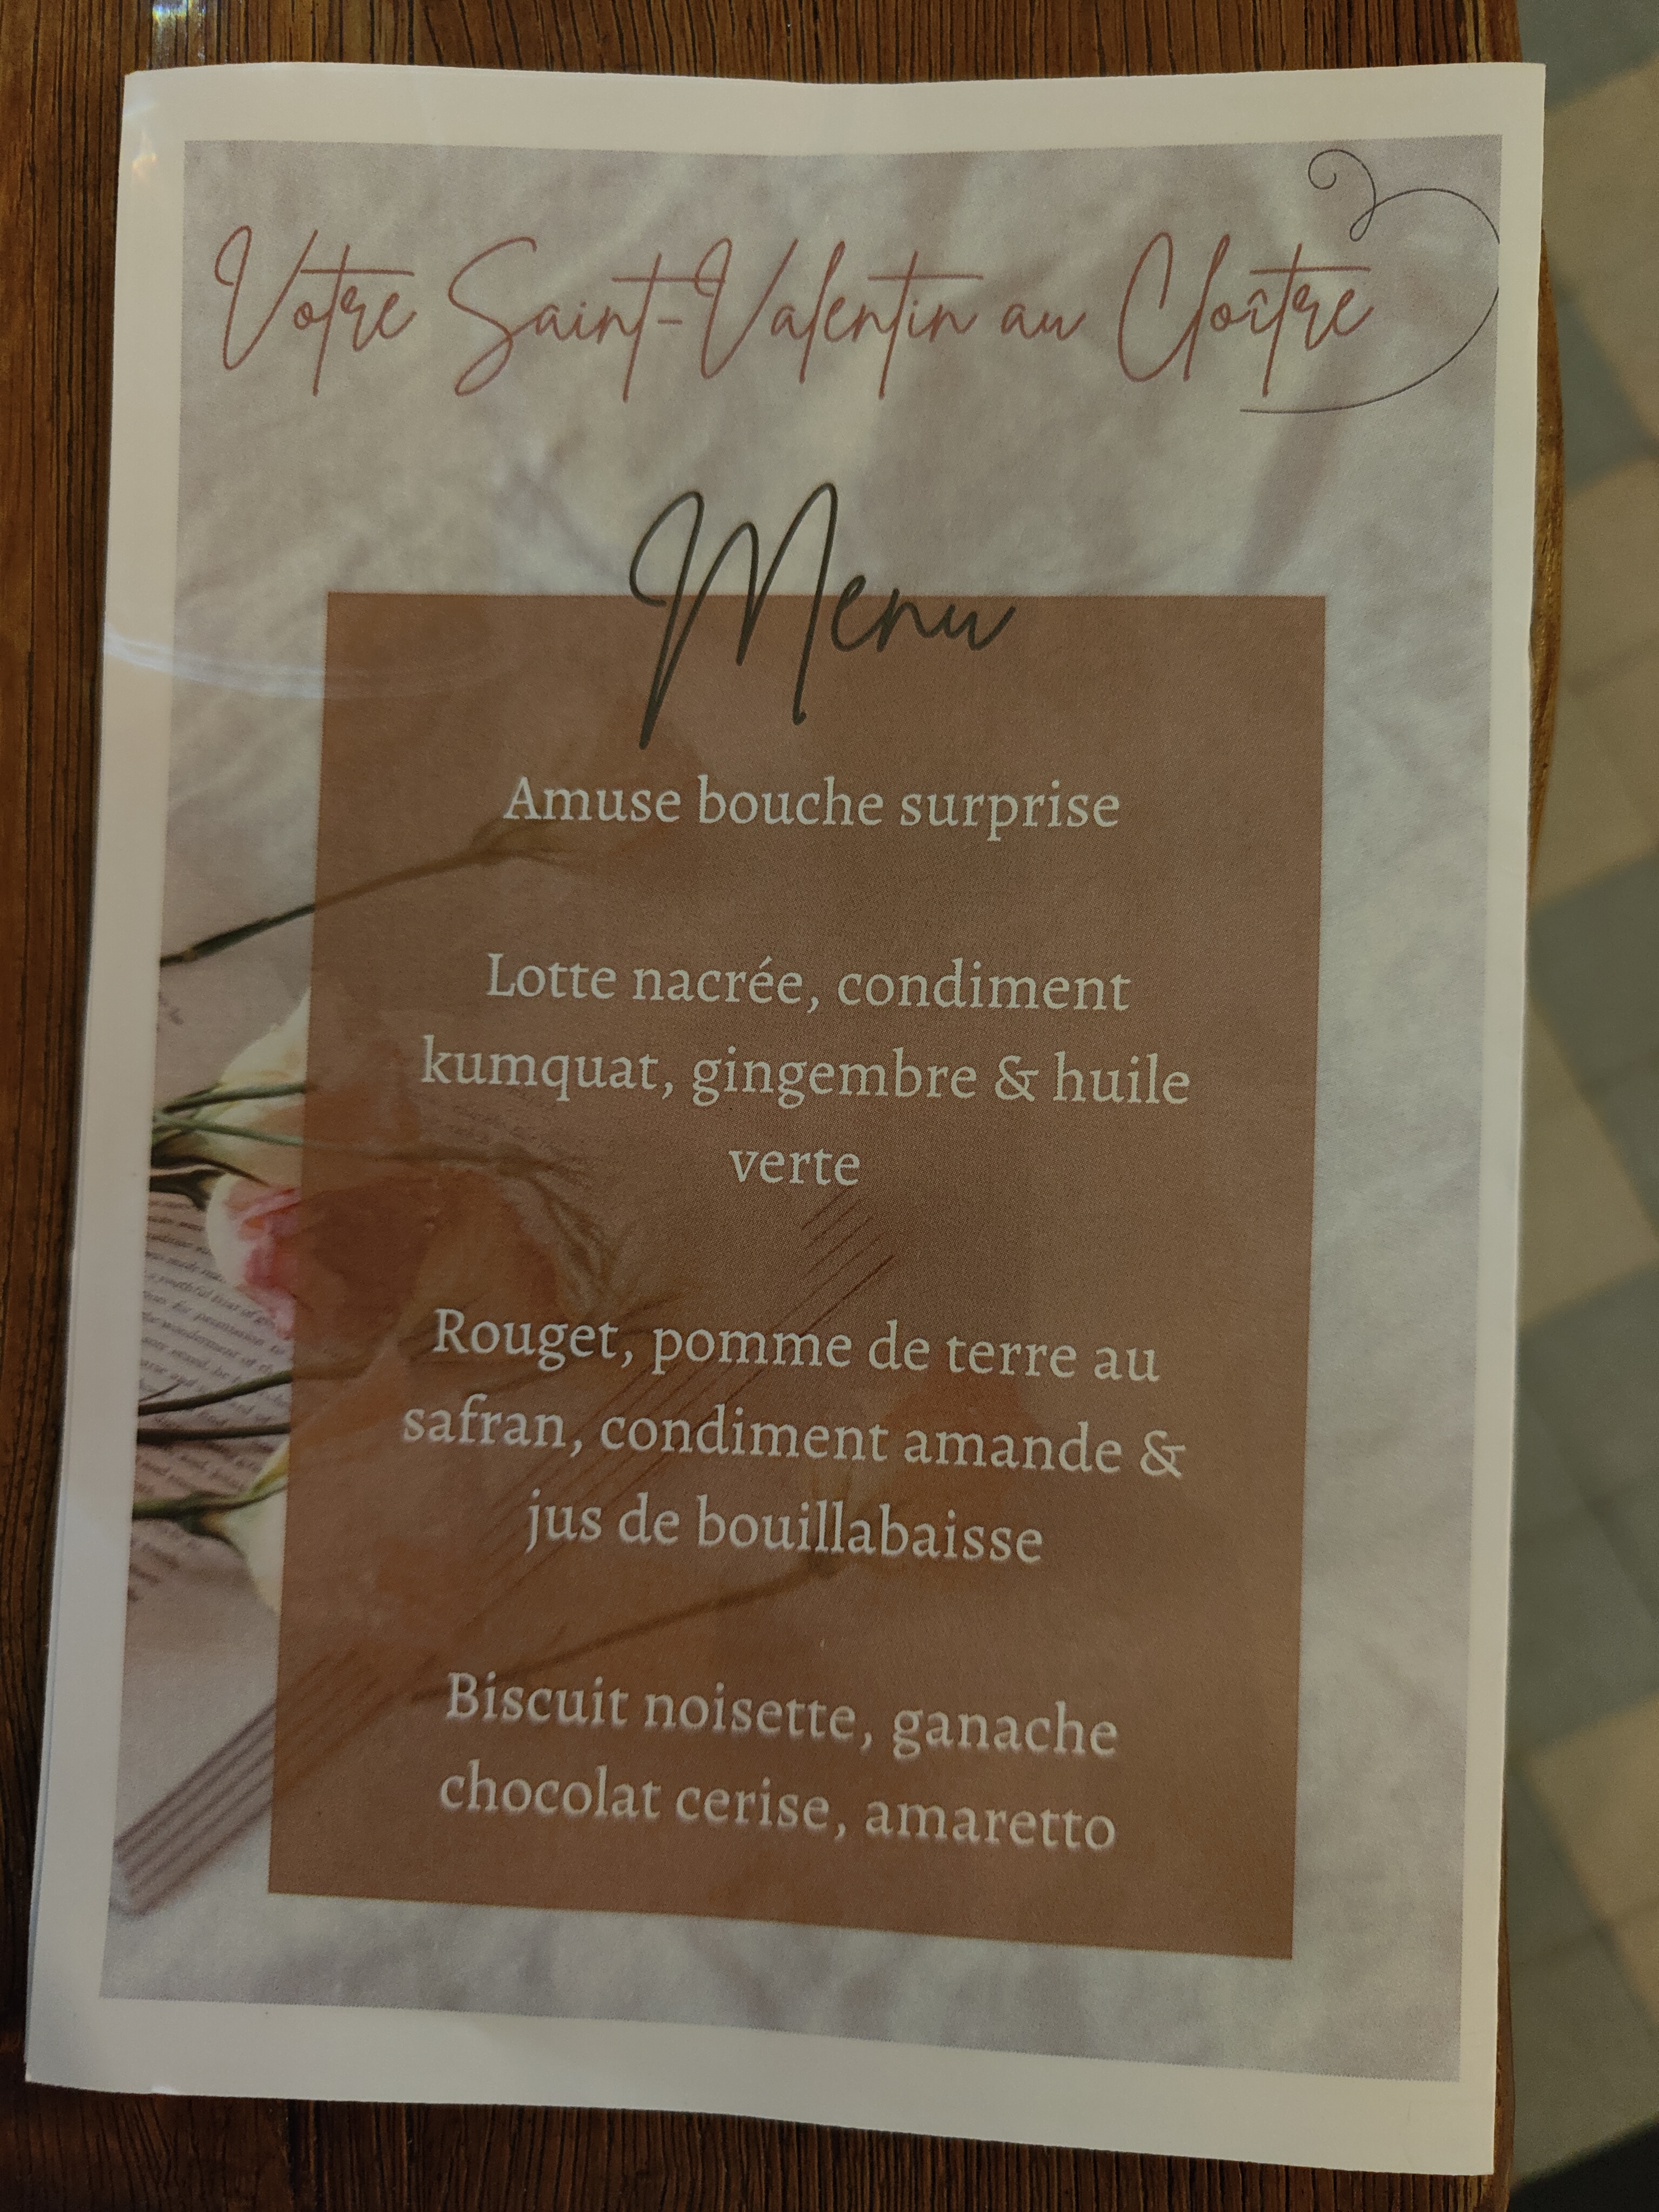 Votre Saint-Valentin au Cloître
Menu
Amuse bouche surprise
Lotte nacrée, condiment
kumquat, gingembre & huile
verte
Rouget, pomme de terre au
safran, condiment amande &
jus de bouillabaisse
Biscuit noisette, ganache
chocolat cerise, amaretto